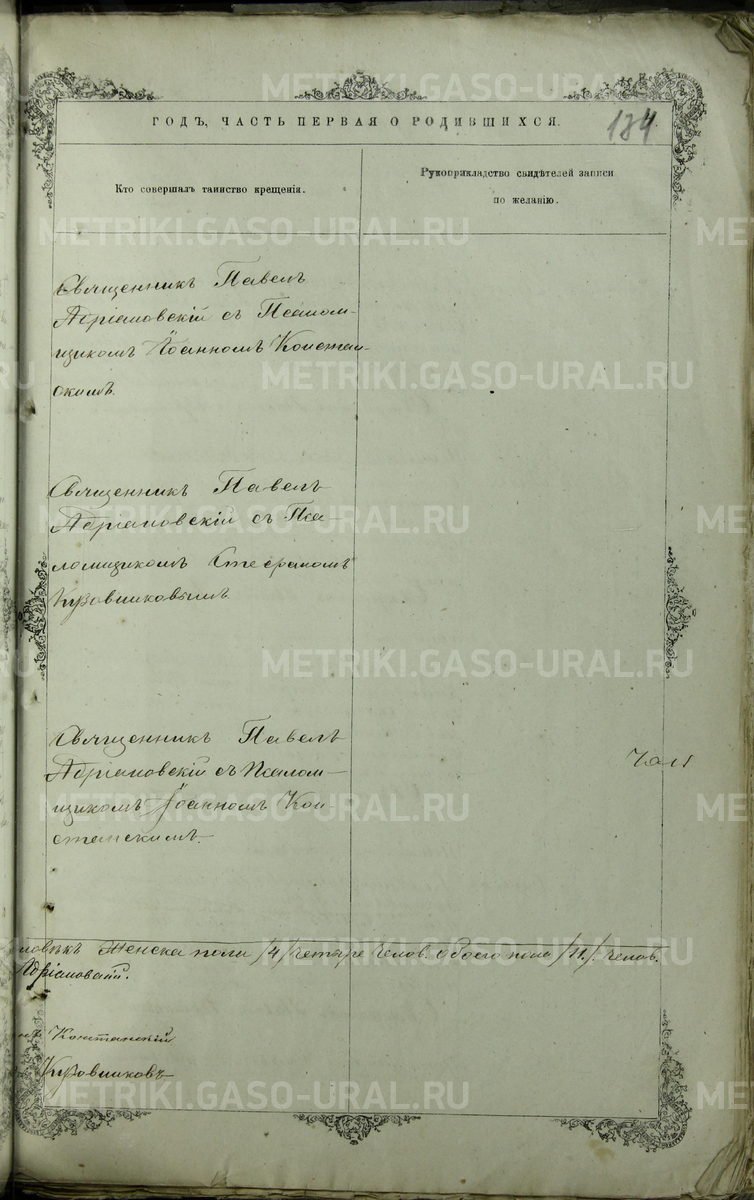 ГОДЪ, ЧАСТЬ ПЕРВАЯ О РОДИВШИХСЯ.
134
Кто совершалъ таинство крещенія.
Рукоприкладство свидѣтелей записи
по желанію.
Священникъ Павелъ
Адріановскій съ Псалом-
щикомъ Іоанномъ Констан-
скимъ.
Священникъ Павелъ
Адріановскій съ Пса-
ломщикомъ Стефаномъ
Священникъ Павелъ
Адріановскій съ Псалом-
щикомъ Іоанномъ Кон-
станскимъ.
ловѣкъ Женска пола /4/ четыре челов. обоего пола /11/. челов.
Адріановскій.
Констанскій
METRIKI.GASO-URAL.RU